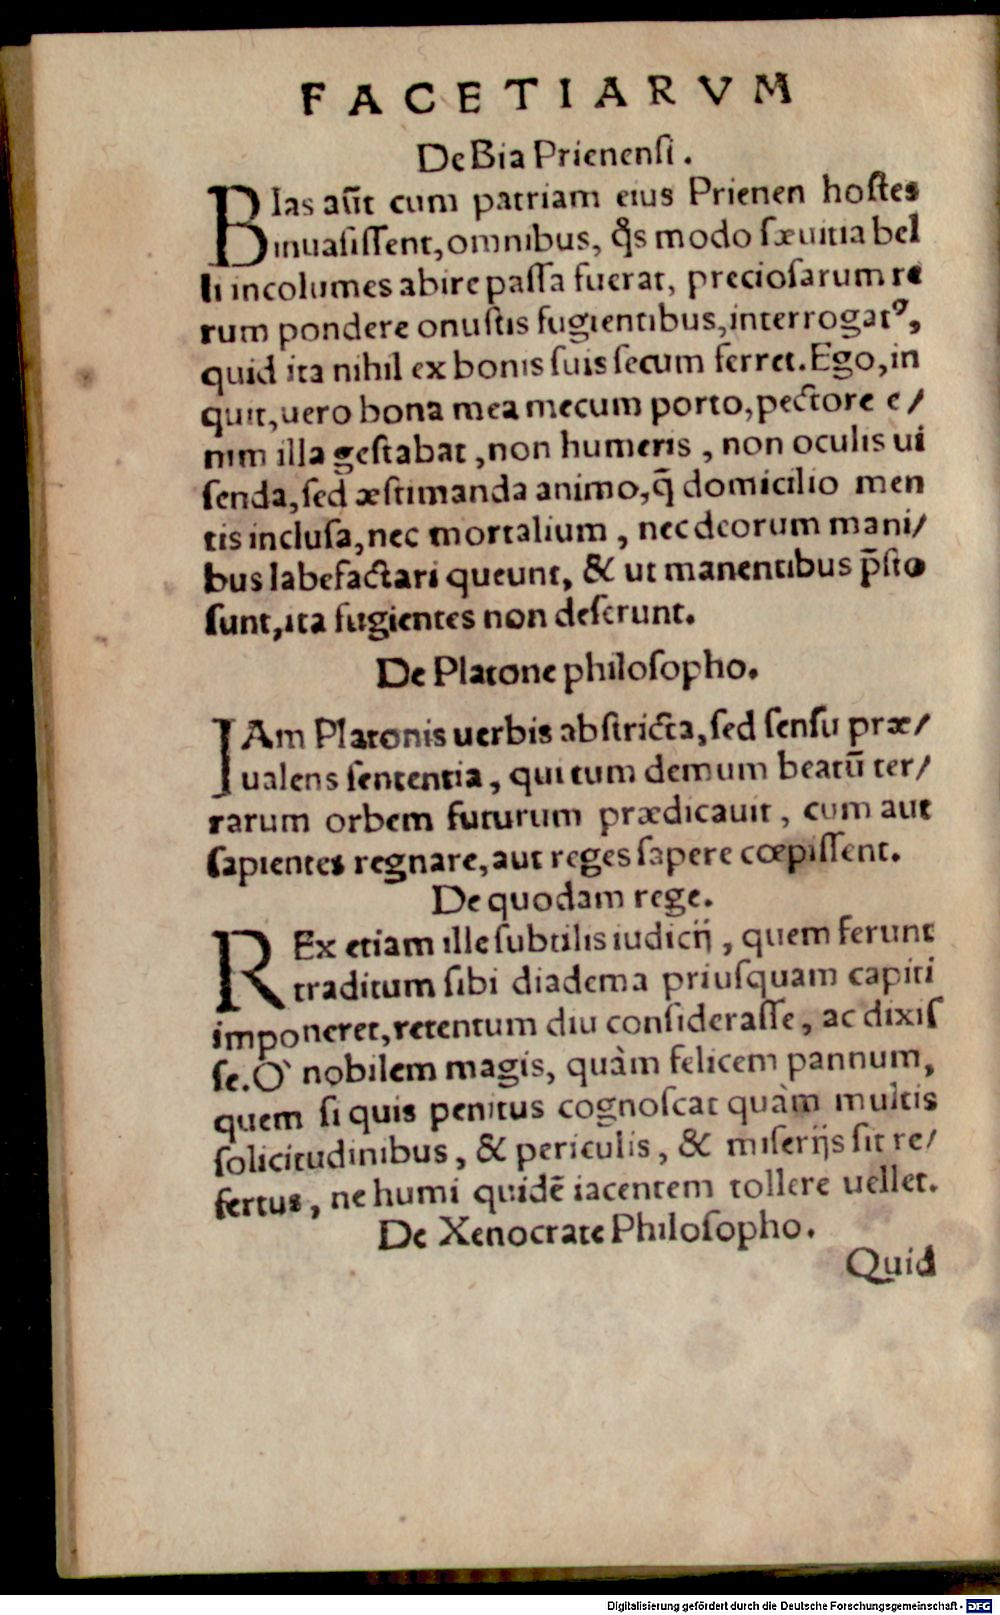 FACETIARVM
De Bia Prienensi.
BIas aūt cum patriam eius Prienen hostes
inuasissent, omnibus, q̊s modo sæuitia bel
li incolumes abire passa fuerat, preciosarum re
rum pondere onustis fugientibus, interrogatꝰ,
quid ita nihil ex bonis suis secum ferret. Ego, in
quit, uero bona mea mecum porto, pectore e/
nim illa gestabat, non humeris, non oculis ui
senda, sed æstimanda animo, q̄ domicilio men
tis inclusa, nec mortalium, nec deorum mani/
bus labefactari queunt, & ut manentibus p̄sto
sunt, ita fugientes non deserunt.
De Platone philosopho.
IAm Platonis uerbis abstricta, sed sensu præ/
ualens sententia, qui tum demum beatū ter/
rarum orbem futurum prædicauit, cum aut
sapientes regnare, aut reges sapere cœpissent.
De quodam rege.
REx etiam ille subtilis iudicij, quem ferunt
traditum sibi diadema priusquam capiti
imponeret, retentum diu considerasse, ac dixis
se. Ò nobilem magis, quàm felicem pannum,
quem si quis penitus cognoscat quàm multis
solicitudinibus, & periculis, & miserijs sit re/
fertus, ne humi quidē iacentem tollere uellet.
De Xenocrate Philosopho.
Quid
Digitalisierung gefördert durch die Deutsche Forschungsgemeinschaft - DFG